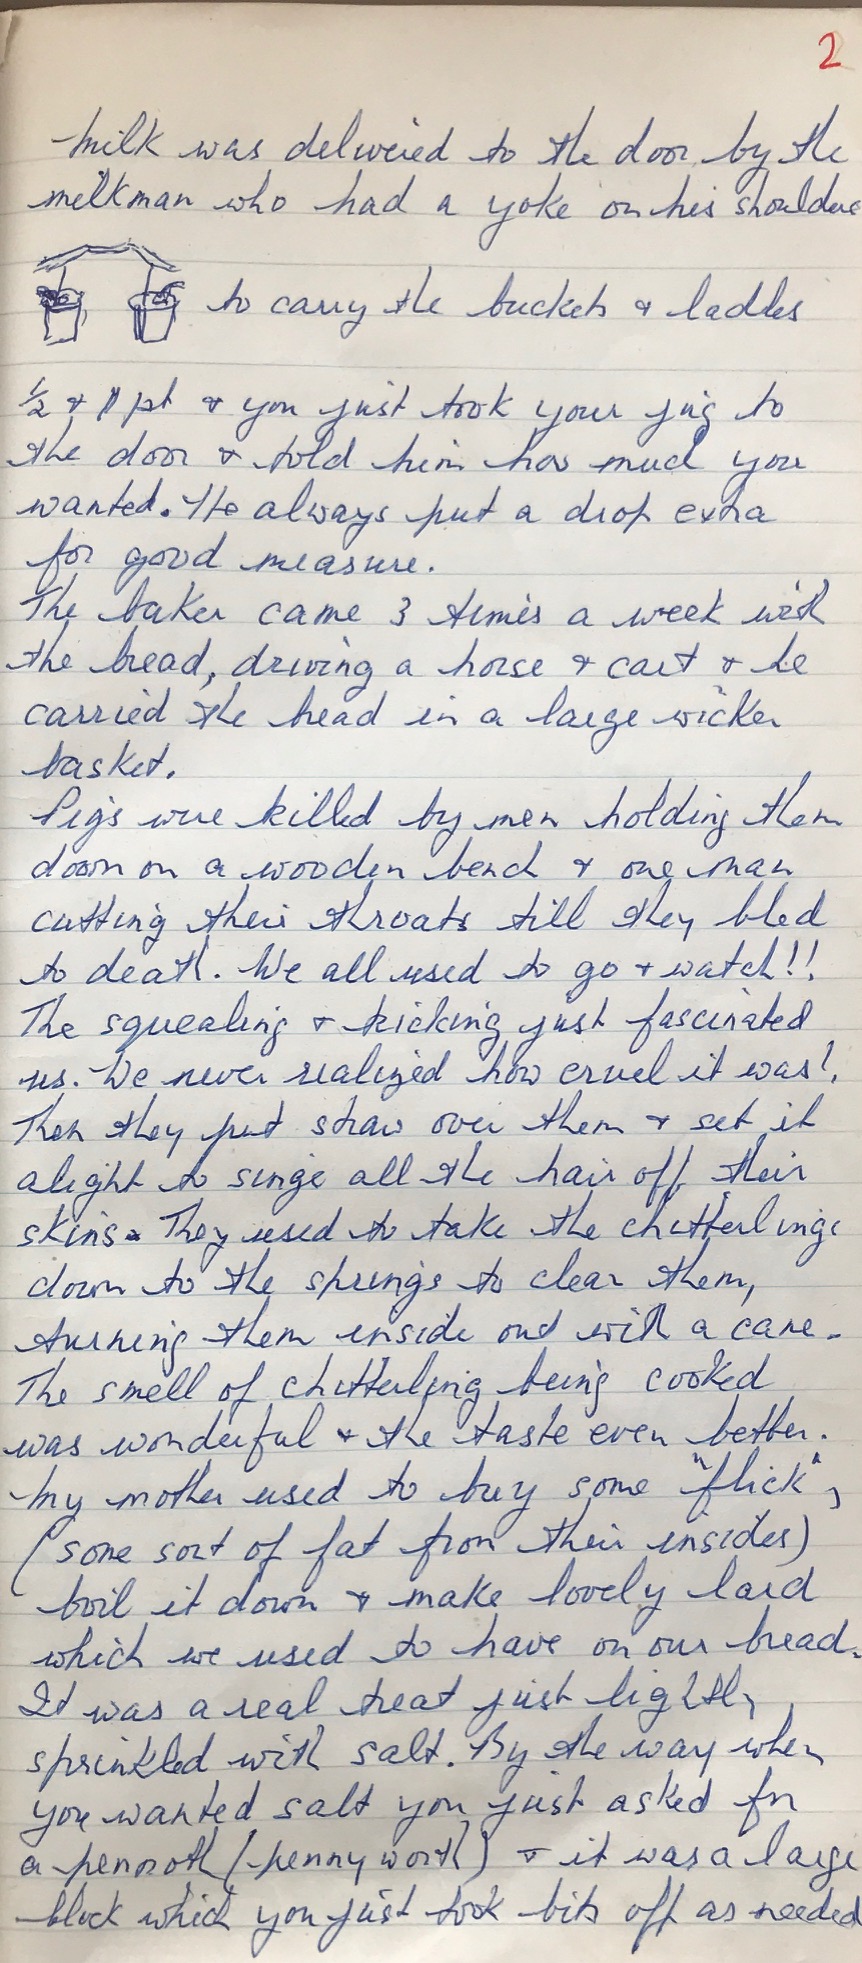 2
Milk was delivered to the door by the
milkman who had a yoke on his shoulders
to carry the buckets & ladles
½ & 1 pt & you just took your jug to
the door & told him how much you
wanted. He always put a drop extra
for good measure.
The baker came 3 times a week with
the bread, driving a horse & cart & he
carried the bread in a large wicker
basket.
Pigs were killed by men holding them
down on a wooden bench & one man
cutting their throats till they bled
to death. We all used to go & watch!!
The squealing & kicking just fascinated
us. We never realized how cruel it was!
Then they put straw over them & set it
alight to singe all the hair off their
skins. They used to take the chitterlings
down to the springs to clean them,
turning them inside out with a cane.
The smell of chitterling being cooked
was wonderful & the taste even better.
My mother used to buy some "flick",
(some sort of fat from their insides)
boil it down & make lovely lard
which we used to have on our bread.
It was a real treat just lightly
sprinkled with salt. By the way when
you wanted salt you just asked for
a pennoth (pennyworth) & it was a large
block which you just took bits off as needed